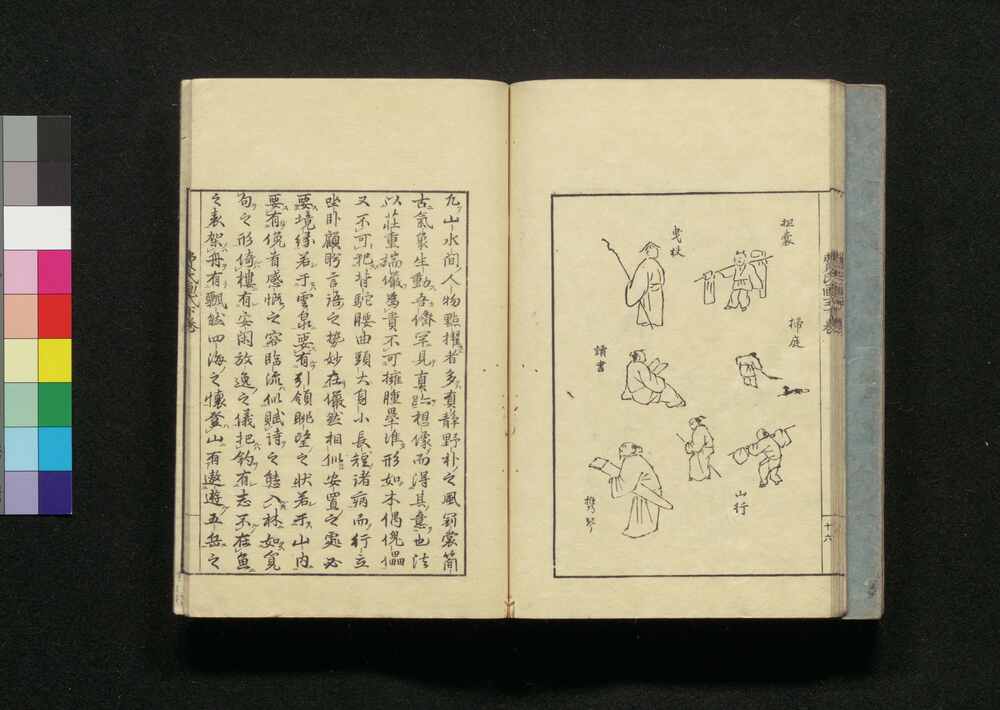 担囊
曳杖
掃庭
讀書
山行
携琴
十六
凡山水間人物點擢者多真靜野朴之風冠裳簡
古氣象生動吾儕罕見真跡想像而得其意也法
以莊重揣儼為貴不可擁腫舉準形如木偶傀儡
又不可把背駝腰曲頸大身小長短諸病而行立
坐臥顧眄言語之勢妙在儼然相似安置之處必
要境緣若于雲泉要有引領眺望之狀若于山內
要有俛首感慨之容臨流似賦詩之態入林如覓
句之形倚樓有安閑放逸之儀把釣有志不在魚
之表架舟有飄然四海之懷登山有遨遊五岳之